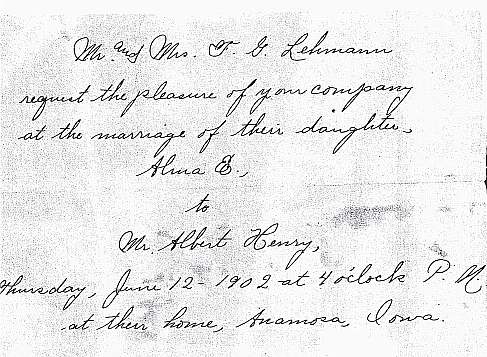 Mr. and Mrs. F. G. Lehmann
request the pleasure of your company
at the marriage of their daughter,
Alma E.,
to
Mr. Albert Henry,
Thursday, June 12 - 1902 at 4 o'clock P. M.
at their home, Anamosa, Iowa.